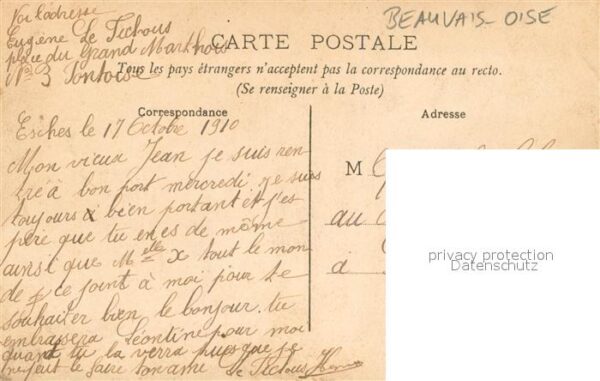 Voi l'adresse
Eugène De Fichous
place du Grand Marthoi
N° 3 Pontoise
BEAUVAIS OISE
CARTE POSTALE
Tous les pays étrangers n'acceptent pas la correspondance au recto.
(Se renseigner à la Poste)
Correspondance
Esches le 17 Octobre 1910
Mon vieux Jean je suis ren
tré à bon port mercredi je suis
toujours bien portant et j'es
père que tu en es de même
ainsi que Melle X tout le mon
de ce joint à moi pour te
souhaiter bien le bonjour. tu
embrassera Léontine pour moi
quant tu la verra puisque je
ne peut le faire ton ami De Fichous
Adresse
M
au
à
privacy protection
Datenschutz